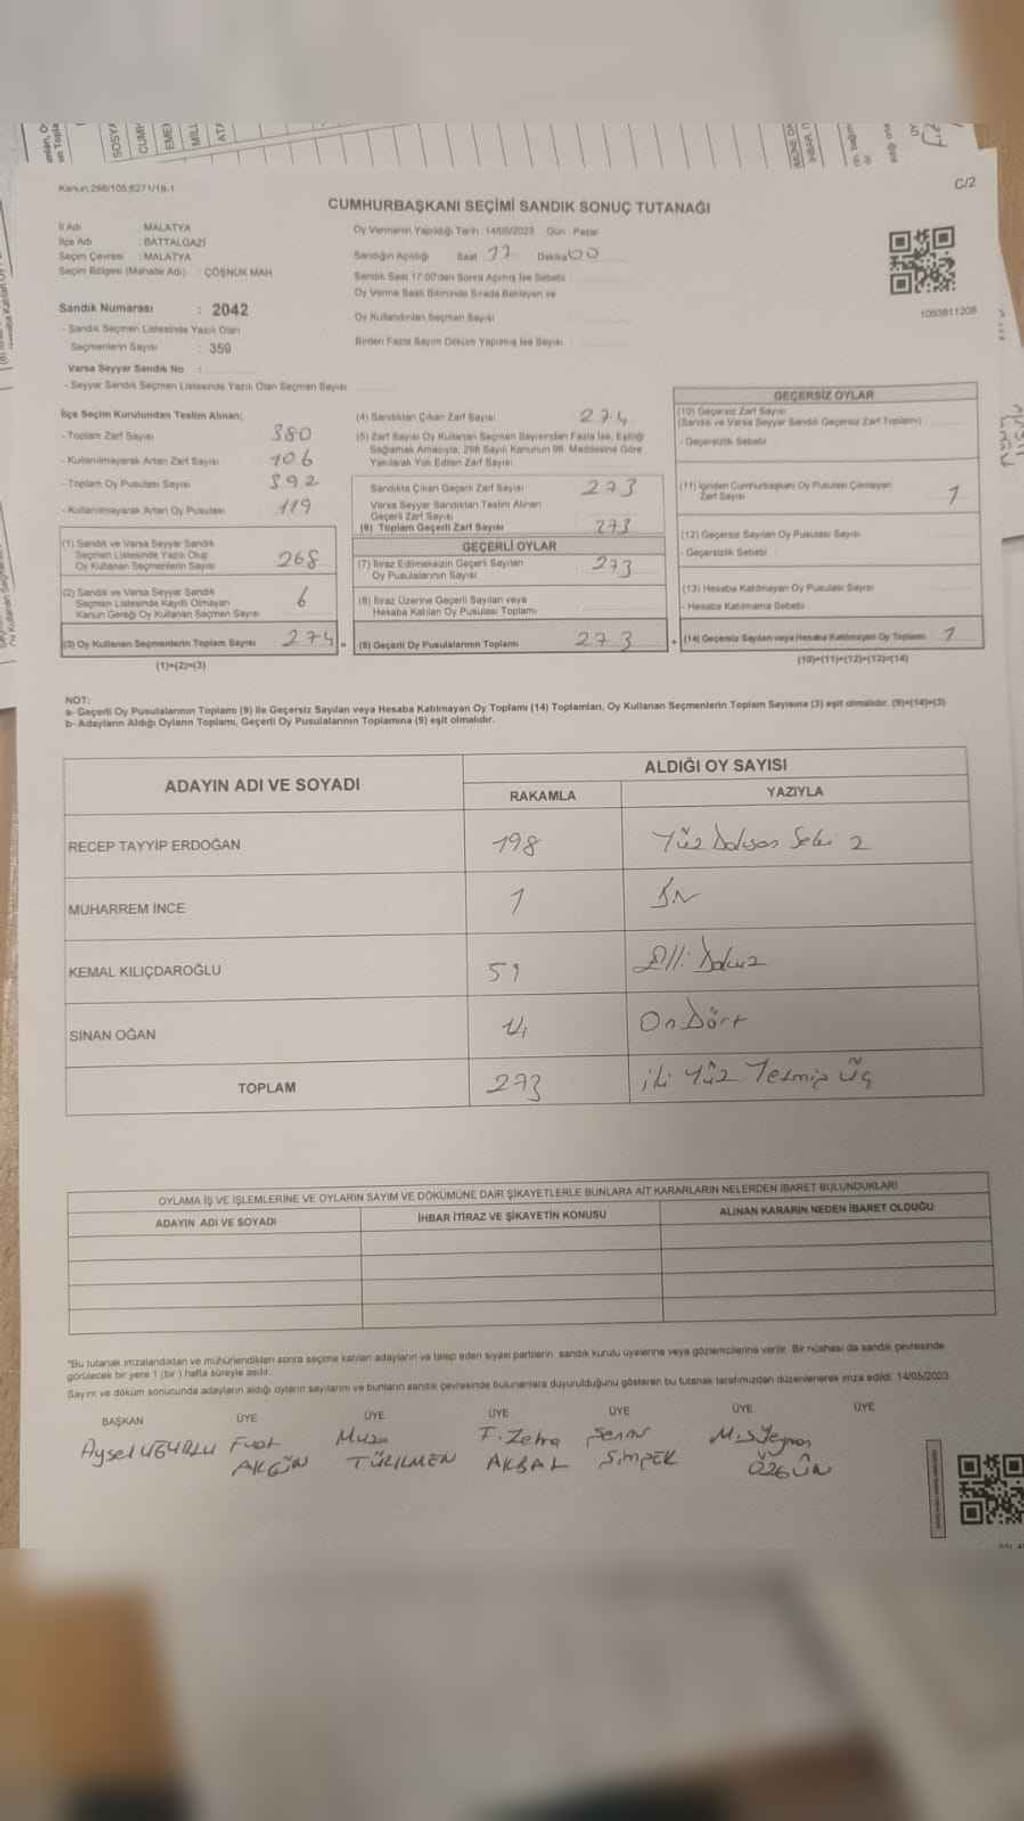 Kanun:298/105,6271/18-1
C/2
CUMHURBAŞKANI SEÇİMİ SANDIK SONUÇ TUTANAĞI
İl Adı : MALATYA
İlçe Adı : BATTALGAZİ
Seçim Çevresi : MALATYA
Seçim Bölgesi (Mahalle Adı) : ÇÖŞNÜK MAH
Sandık Numarası : 2042
- Sandık Seçmen Listesinde Yazılı Olan
Seçmenlerin Sayısı : 359
Varsa Seyyar Sandık No :
- Seyyar Sandık Seçmen Listesinde Yazılı Olan Seçmen Sayısı
Oy Vermenin Yapıldığı Tarih : 14/05/2023 Gün : Pazar
Sandığın Açıldığı Saat 17 Dakika 00
Sandık Saat 17:00'den Sonra Açılmış İse Sebebi
Oy Verme Saati Bitiminde Sırada Bekleyen ve
Oy Kullandırılan Seçmen Sayısı
Birden Fazla Sayım Döküm Yapılmış İse Sayısı
1093811208
İlçe Seçim Kurulundan Teslim Alınan;
- Toplam Zarf Sayısı 380
- Kullanılmayarak Artan Zarf Sayısı 106
- Toplam Oy Pusulası Sayısı 392
- Kullanılmayarak Artan Oy Pusulası 119
(1) Sandık ve Varsa Seyyar Sandık
Seçmen Listesinde Yazılı Olup
Oy Kullanan Seçmenlerin Sayısı 268
(2) Sandık ve Varsa Seyyar Sandık
Seçmen Listesinde Kayıtlı Olmayan
Kanun Gereği Oy Kullanan Seçmen Sayısı 6
(3) Oy Kullanan Seçmenlerin Toplam Sayısı 274 =
(1)+(2)=(3)
(4) Sandıktan Çıkan Zarf Sayısı 274
(5) Zarf Sayısı Oy Kullanan Seçmen Sayısından Fazla İse, Eşitliği
Sağlamak Amacıyla, 298 Sayılı Kanunun 98. Maddesine Göre
Yakılarak Yok Edilen Zarf Sayısı
Sandıkta Çıkan Geçerli Zarf Sayısı 273
Varsa Seyyar Sandıktan Teslim Alınan
Geçerli Zarf Sayısı
(6) Toplam Geçerli Zarf Sayısı 273
GEÇERLİ OYLAR
(7) İtiraz Edilmeksizin Geçerli Sayılan
Oy Pusulalarının Sayısı 273
(8) İtiraz Üzerine Geçerli Sayılan veya
Hesaba Katılan Oy Pusulası Toplamı
(9) Geçerli Oy Pusulalarının Toplamı 273 +
GEÇERSİZ OYLAR
(10) Geçersiz Zarf Sayısı
(Sandık ve Varsa Seyyar Sandık Geçersiz Zarf Toplamı)
- Geçersizlik Sebebi
(11) İçinden Cumhurbaşkanı Oy Pusulası Çıkmayan
Zarf Sayısı 1
(12) Geçersiz Sayılan Oy Pusulası Sayısı
- Geçersizlik Sebebi
(13) Hesaba Katılmayan Oy Pusulası Sayısı
- Hesaba Katılmama Sebebi
(14) Geçersiz Sayılan veya Hesaba Katılmayan Oy Toplamı 1
(10)+(11)+(12)+(13)=(14)
NOT:
a- Geçerli Oy Pusulalarının Toplamı (9) ile Geçersiz Sayılan veya Hesaba Katılmayan Oy Toplamı (14) Toplamları, Oy Kullanan Seçmenlerin Toplam Sayısına (3) eşit olmalıdır. (9)+(14)=(3)
b- Adayların Aldığı Oyların Toplamı, Geçerli Oy Pusulalarının Toplamına (9) eşit olmalıdır.
ADAYIN ADI VE SOYADI
ALDIĞI OY SAYISI
RAKAMLA YAZIYLA
RECEP TAYYİP ERDOĞAN 198 Yüz Doksan Seki 2
MUHARREM İNCE 1
KEMAL KILIÇDAROĞLU 59 Elli Dokuz
SİNAN OĞAN 14 On Dört
TOPLAM 273 iki Yüz Yetmiş Üç
OYLAMA İŞ VE İŞLEMLERİNE VE OYLARIN SAYIM VE DÖKÜMÜNE DAİR ŞİKAYETLERLE BUNLARA AİT KARARLARIN NELERDEN İBARET BULUNDUKLARI
ADAYIN ADI VE SOYADI İHBAR İTİRAZ VE ŞİKAYETİN KONUSU ALINAN KARARIN NEDEN İBARET OLDUĞU
"Bu tutanak imzalandıktan ve mühürlendikten sonra seçime katılan adayların ve talep eden siyasi partilerin, sandık kurulu üyelerine veya gözlemcilerine verilir. Bir nüshası da sandık çevresinde
görülecek bir yere 1 (bir) hafta süreyle asılır.
Sayım ve döküm sonucunda adayların aldığı oyların sayılarını ve bunların sandık çevresinde bulunanlara duyurulduğunu gösteren bu tutanak tarafımızdan düzenlenerek imza edildi. 14/05/2023
BAŞKAN ÜYE ÜYE ÜYE ÜYE ÜYE ÜYE
Aysel UĞURLU Fuat AKGÜN
TÜRKMEN
F. Zehra AKBAL
ÖZGÜN